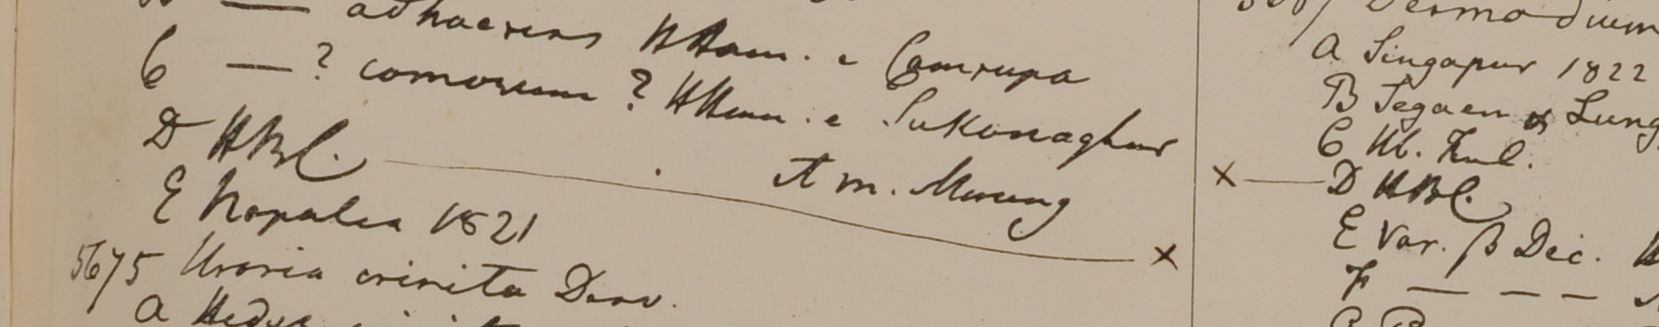 — adhaerens HHam. e Camrupa
C —? comosum? HHam. e Sukanaghur
et m. Morung
D HBC.
E Napalia 1821
5675 Uraria crinita Desv.
A Hedys
Desmodium
A Singapur 1822
B Segaen & Lung
C Hb.
× — D HBC.
E Var. β Dec.
F — — —